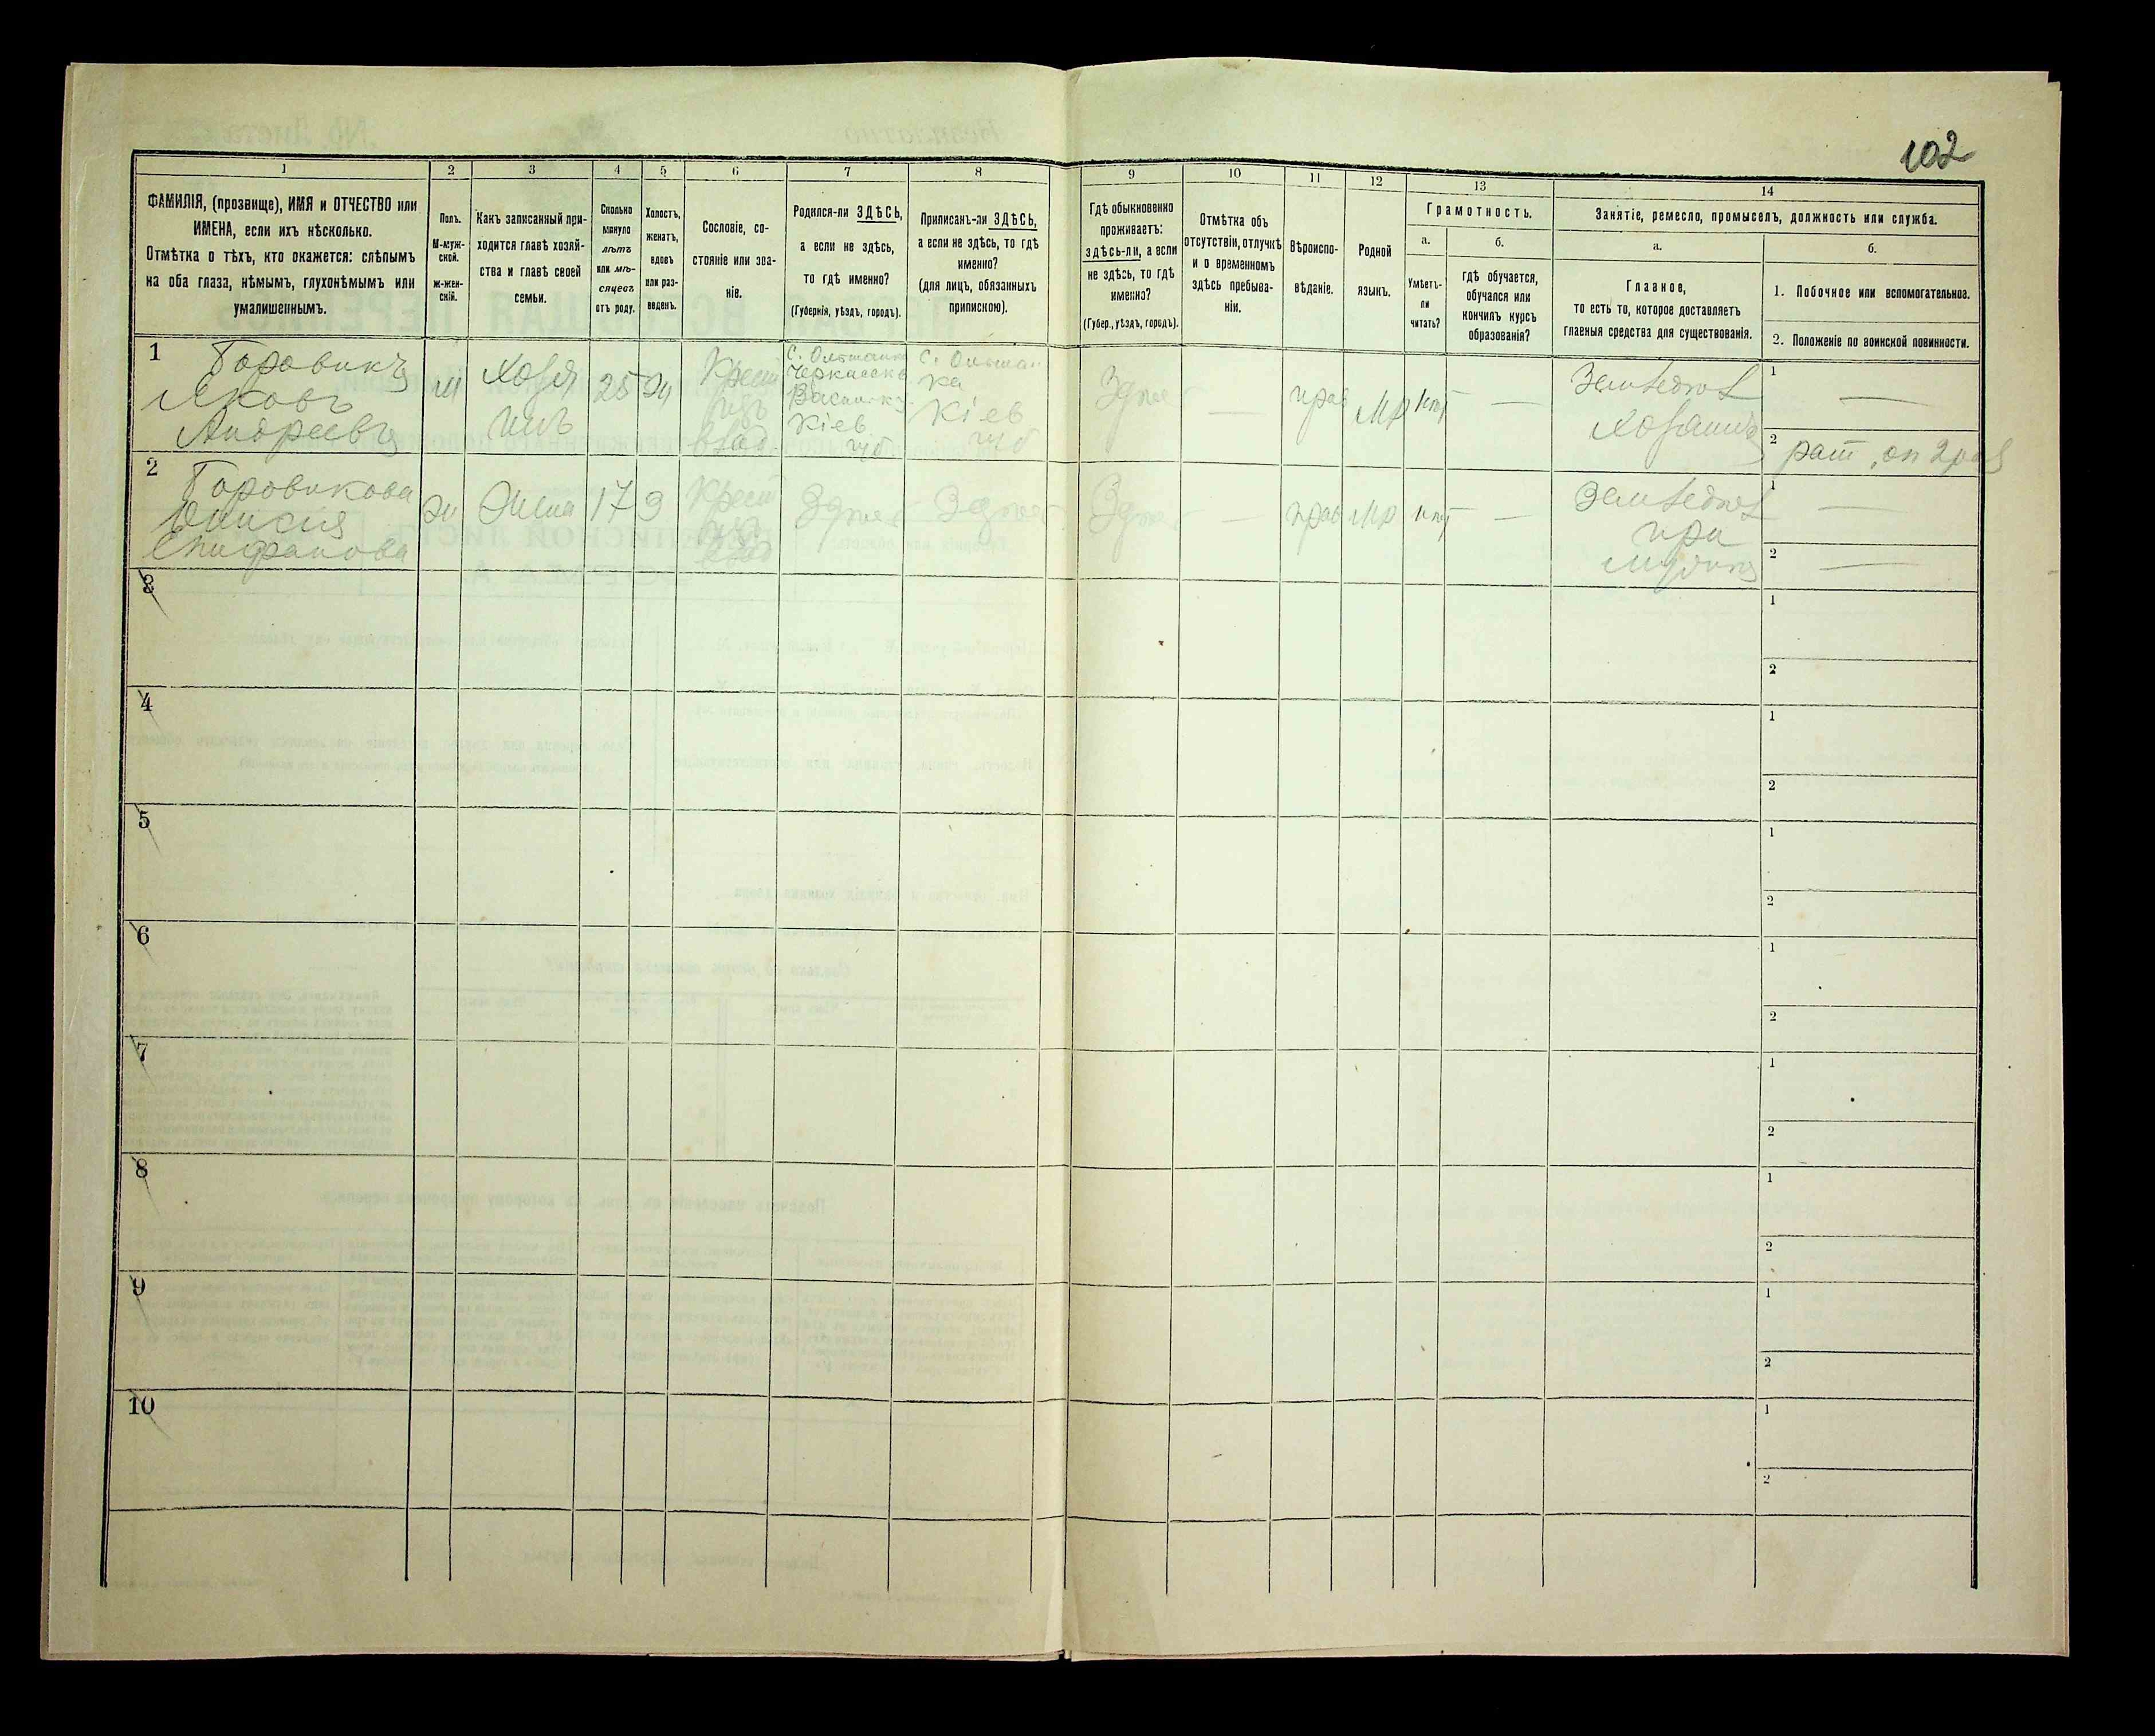 102
1 2 3 4 5 6 7 8 9 10 11 12 13 14
ФАМИЛІЯ, (прозвище), ИМЯ и ОТЧЕСТВО или
ИМЕНА, если ихъ нѣсколько.
Отмѣтка о тѣхъ, кто окажется: слѣпымъ
на оба глаза, нѣмымъ, глухонѣмымъ или
умалишеннымъ.
Полъ.
М-муж-
ской.
ж-жен-
скій.
Какъ записанный при-
ходится главѣ хозяй-
ства и главѣ своей
семьи.
Сколько
минуло
лѣтъ
или мѣ-
сяцевъ
отъ роду.
Холостъ,
женатъ,
вдовъ
или раз-
веденъ.
Сословіе, со-
стояніе или зва-
ніе.
Родился-ли ЗДѢСЬ,
а если не здѣсь,
то гдѣ именно?
(Губернія, уѣздъ, городъ).
Приписанъ-ли ЗДѢСЬ,
а если не здѣсь, то гдѣ
именно?
(для лицъ, обязанныхъ
припискою).
Гдѣ обыкновенно
проживаетъ:
здѣсь-ли, а если
не здѣсь, то гдѣ
именно?
(Губер., уѣздъ, городъ).
Отмѣтка объ
отсутствіи, отлучкѣ
и о временномъ
здѣсь пребыва-
ніи.
Вѣроиспо-
вѣданіе.
Родной
языкъ.
Грамотность.
а.
Умѣетъ-
ли
читать?
б.
гдѣ обучается,
обучался или
кончилъ курсъ
образованія?
Занятіе, ремесло, промыселъ, должность или служба.
а.
Главное,
то есть то, которое доставляетъ
главныя средства для существованія.
б.
1. Побочное или вспомогательное.
2. Положеніе по воинской повинности.
1
Яковъ
Андреевъ
м
Хозя
инъ
25
ж
Крест
влад.
С. Ольшанка
Черкасск.
Васильк. у.
Кіев.
губ.
С. Ольшан
ка
Кіев
губ
Здѣсь
—
прав
мр
нѣт
—
Землед
1 —
2 рат. оп 2 раз
2
Епифанова
ж
Жена
17
З
Крест
влад
Здѣсь
Здѣсь
Здѣсь
—
прав
мр
нѣт
—
Землед
при
мужѣ
1 —
2 —
3
1
2
4
1
2
5
1
2
6
1
2
7
1
2
8
1
2
9
1
2
10
1
2